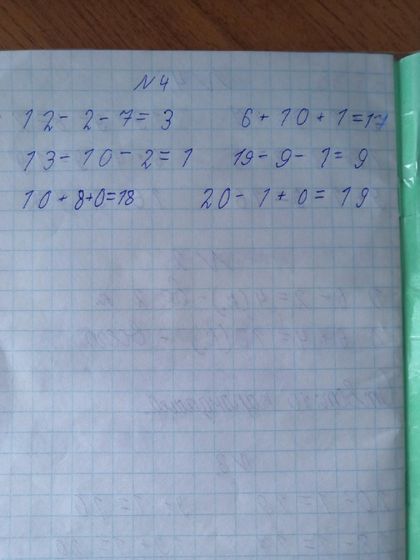 N 4
12 - 2 - 7 = 3 6 + 10 + 1 = 17
13 - 10 - 2 = 1 19 - 9 - 1 = 9
10 + 8 + 0 = 18 20 - 1 + 0 = 19